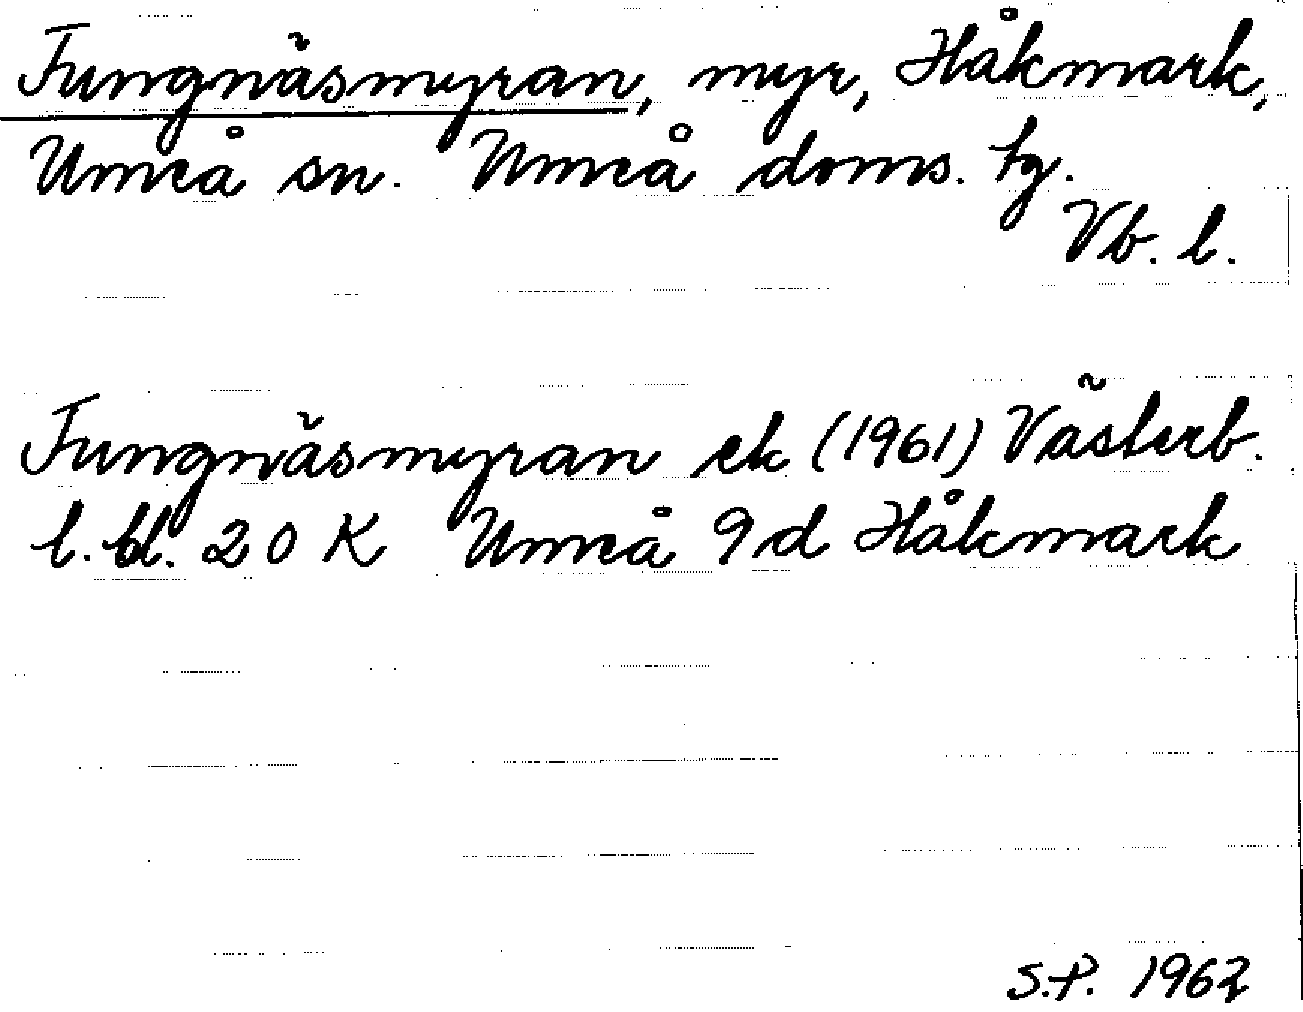 Tungnäsmyran, myr, Håkmark,
Umeå sn. Umeå doms. tg.
Vb. l.
Tungnäsmyran ek (1961) Västerb.
l. bl. 20 K Umeå 9d Håkmark
S.P. 1962